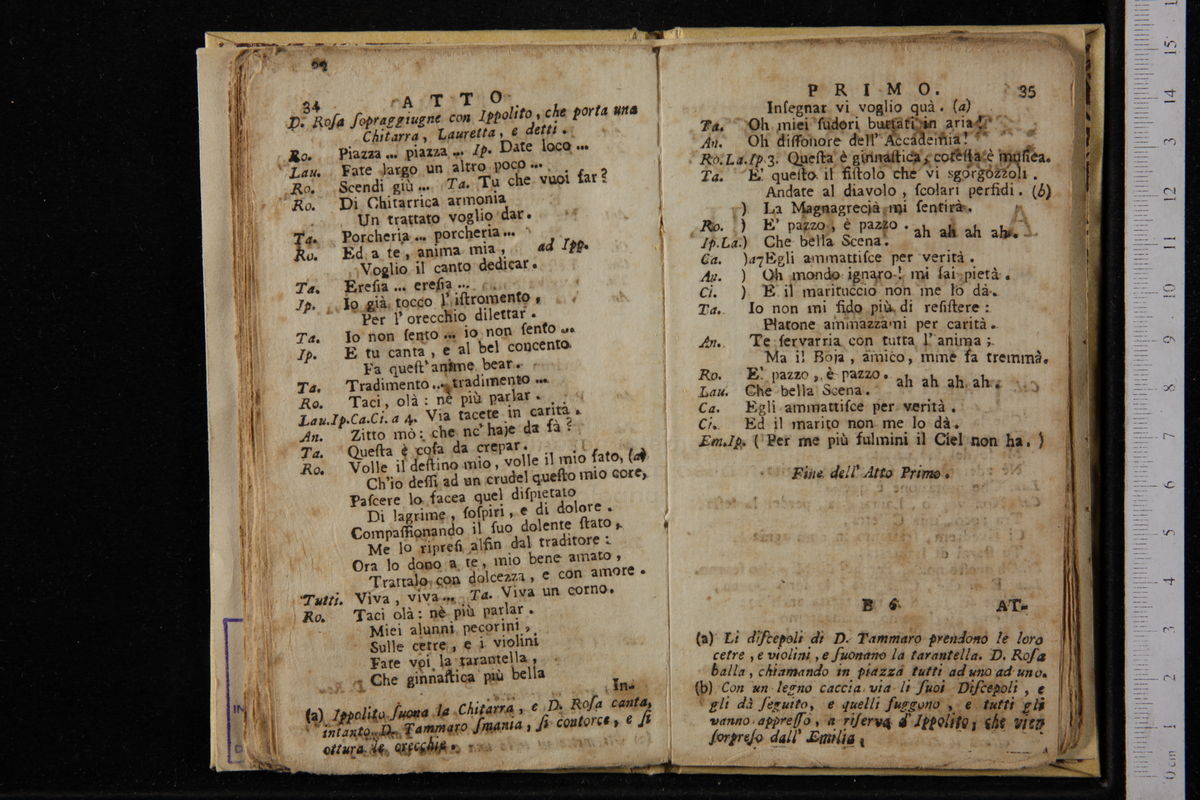 34 ATTO
D. Roſa ſopraggiugne con Ippolito, che porta una
Chitarra, Lauretta, e detti.
Ro. Piazza ... piazza ... Ip. Date loco ...
Lau. Fate largo un altro poco ...
Ro. Scendi giù ... Ta. Tu che vuoi far?
Ro. Di Chitarrica armonia
Un trattato voglio dar.
Ta. Porcheria ... porcheria ...
Ro. Ed a te, anima mia, ad Ipp.
Voglio il canto dedicar.
Ta. Ereſia ... ereſia ...
Ip. Io già tocco l'iſtromento,
Per l'orecchio dilettar.
Ta. Io non ſento ... io non ſento ...
Ip. E tu canta, e al bel concento
Fa queſt'anime bear.
Ta. Tradimento ... tradimento ...
Ro. Taci, olà: nè più parlar.
Lau.Ip.Ca.Ci. a 4. Via tacete in carità.
An. Zitto mò: che nc'haje da fà?
Ta. Queſta è coſa da crepar.
Ro. Volle il deſtino mio, volle il mio fato, (a)
Ch'io deſſi ad un crudel queſto mio core,
Paſcere lo facea quel diſpietato
Di lagrime, ſoſpiri, e di dolore.
Compaſſionando il ſuo dolente ſtato,
Me lo ripreſi alfin dal traditore:
Ora lo dono a te, mio bene amato,
Trattalo con dolcezza, e con amore.
Tutti. Viva, viva ... Ta. Viva un corno.
Ro. Taci olà: nè più parlar.
Miei alunni pecorini,
Sulle cetre, e i violini
Fate voi la tarantella,
Che ginnaſtica più bella
In-
(a) Ippolito ſuona la Chitarra, e D. Roſa canta,
intanto D. Tammaro ſmania, ſi contorce, e ſi
ottura le orecchie.
PRIMO. 35
Inſegnar vi voglio quà. (a)
Ta. Oh miei ſudori buttati in aria!
An. Oh diſſonore dell'Accademia!
Ro.La.Ip.3. Queſta è ginnaſtica, coteſta è muſica.
Ta. E' queſto il fiſtolo che vi sgorgozzoli.
Andate al diavolo, ſcolari perfidi. (b)
) La Magnagrecia mi ſentirà.
Ro. ) E' pazzo, è pazzo. ah ah ah ah.
Ip.La.) Che bella Scena.
Ca. )a7Egli ammattiſce per verità.
An. ) Oh mondo ignaro! mi fai pietà.
Ci. ) E il marituccio non me lo dà.
Ta. Io non mi fido più di reſiſtere:
Platone ammazzami per carità.
An. Te ſervarria con tutta l'anima;
Ma il Boja, amico, mme fa tremmà.
Ro. E' pazzo, è pazzo. ah ah ah ah.
Lau. Che bella Scena.
Ca. Egli ammattiſce per verità.
Ci. Ed il marito non me lo dà.
Em.Ip. (Per me più fulmini il Ciel non ha.)
Fine dell'Atto Primo.
B 6 AT-
(a) Li diſcepoli di D. Tammaro prendono le loro
cetre, e violini, e ſuonano la tarantella. D. Roſa
balla, chiamando in piazza tutti ad uno ad uno.
(b) Con un legno caccia via li ſuoi Diſcepoli, e
gli dà ſeguito, e quelli fuggono, e tutti gli
vanno appreſſo, a riſerva d'Ippolito, che vien
ſorpreſo dall'Emilia.
0 cm 1 2 3 4 5 6 7 8 9 10 11 12 13 14 15